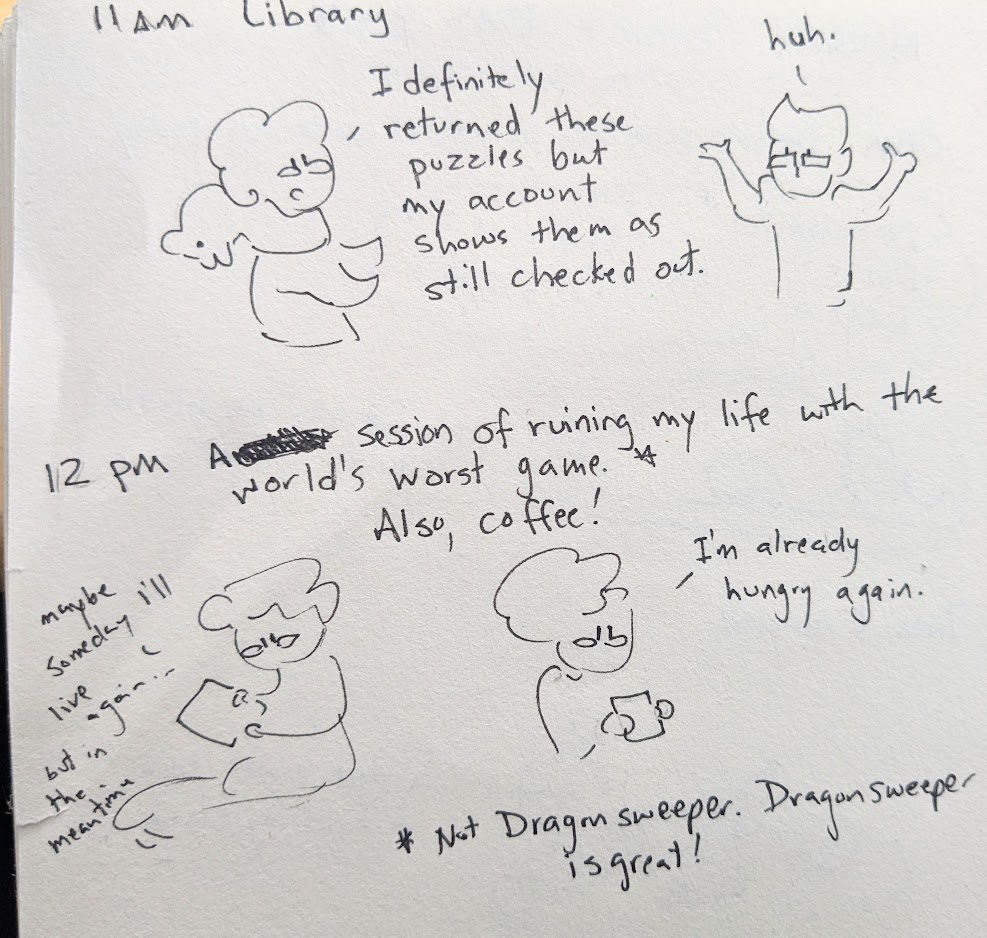 11 AM Library
I definitely
returned these
puzzles but
my account
shows them as
still checked out.
huh.
12 pm A session of ruining my life with the
world's worst game. *
Also, coffee!
maybe
someday i'll
live
again...
but in
the
meantime
I'm already
hungry again.
* Not Dragonsweeper. Dragonsweeper
is great!